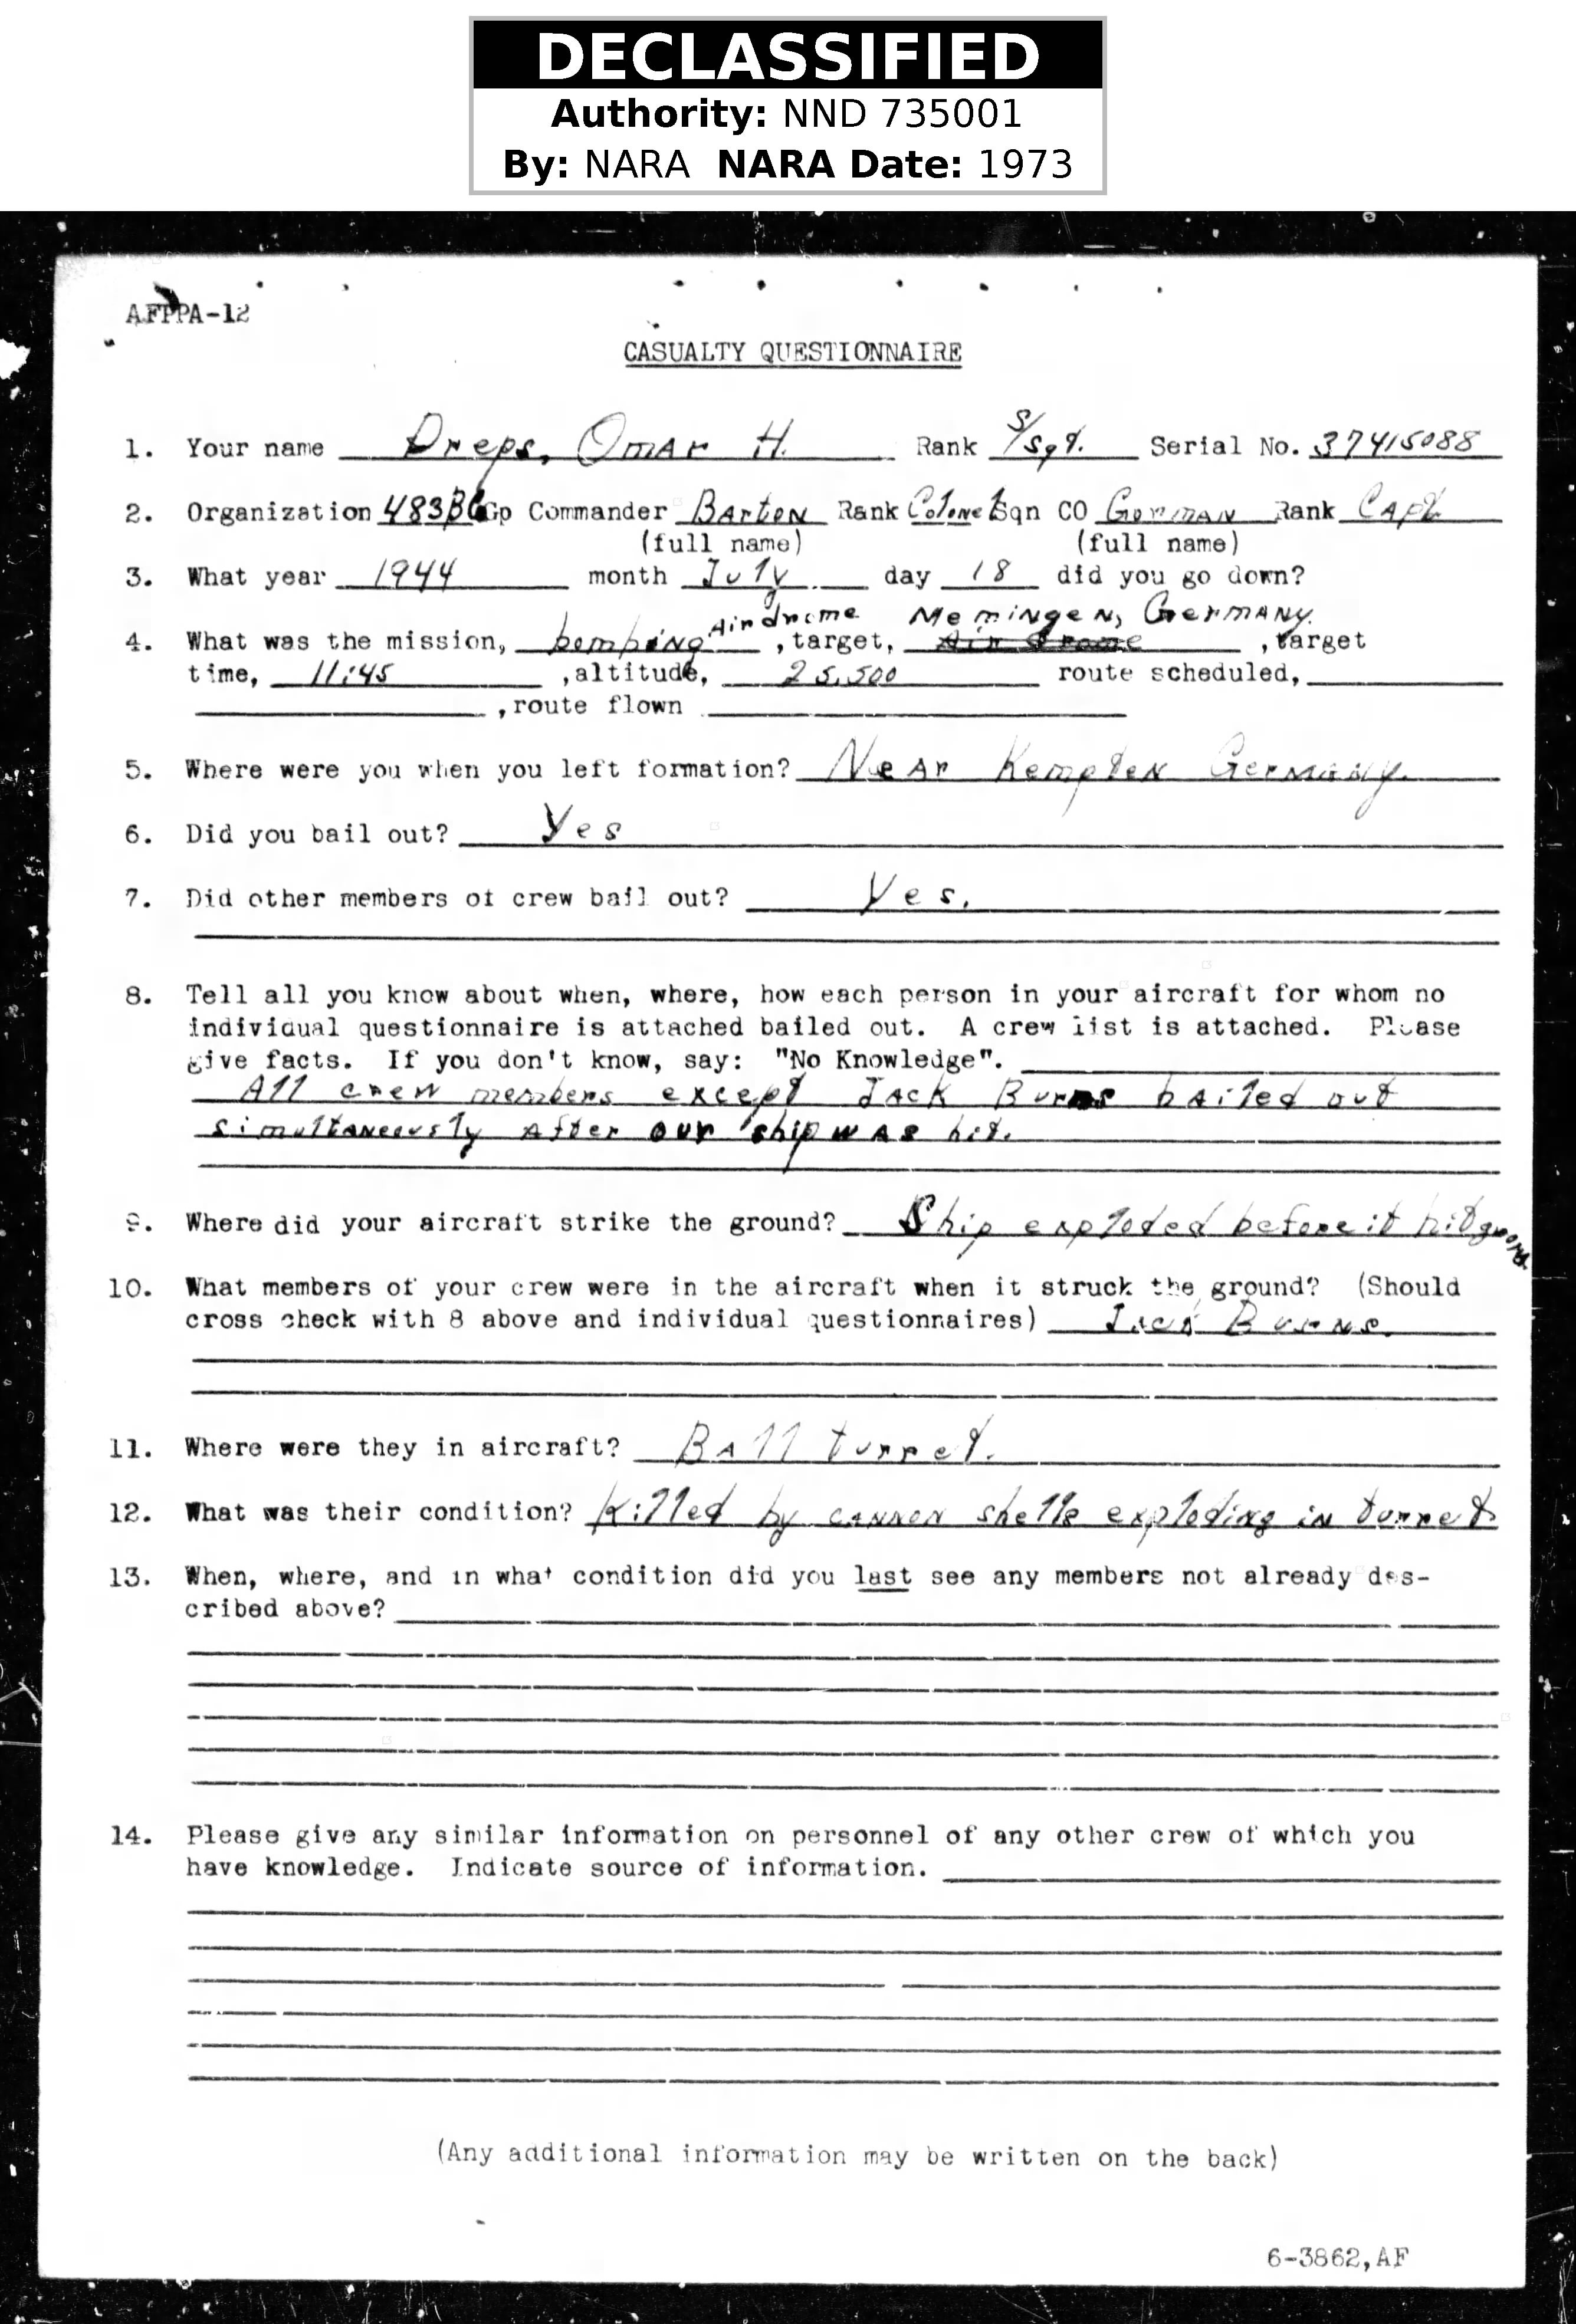 DECLASSIFIED
Authority: NND 735001
By: NARA NARA Date: 1973
AFPPA-12
CASUALTY QUESTIONNAIRE
1. Your name Dreps, Omar H. Rank S/Sgt. Serial No. 37415088
2. Organization 483BG Gp Commander Barton Rank Colonel Sqn CO Gorman Rank Capt
(full name) (full name)
3. What year 1944 month July day 18 did you go down?
Airdrome Memingen, Germany.
4. What was the mission, bombing , target, Air Drome , target
time, 11:45 ,altitude, 25,500 route scheduled,
,route flown
5. Where were you when you left formation? Near Kempten Germany.
6. Did you bail out? Yes
7. Did other members of crew bail out? Yes.
8. Tell all you know about when, where, how each person in your aircraft for whom no
individual questionnaire is attached bailed out. A crew list is attached. Please
give facts. If you don't know, say: "No Knowledge".
All crew members except Jack Burns bailed out
simultaneously after our ship was hit.
9. Where did your aircraft strike the ground? Ship exploded before it hit ground.
10. What members of your crew were in the aircraft when it struck the ground? (Should
cross check with 8 above and individual questionnaires) Jack Burns.
11. Where were they in aircraft? Ball turret.
12. What was their condition? Killed by cannon shells exploding in turret
13. When, where, and in what condition did you last see any members not already des-
cribed above?
14. Please give any similar information on personnel of any other crew of which you
have knowledge. Indicate source of information.
(Any additional information may be written on the back)
6-3862,AF